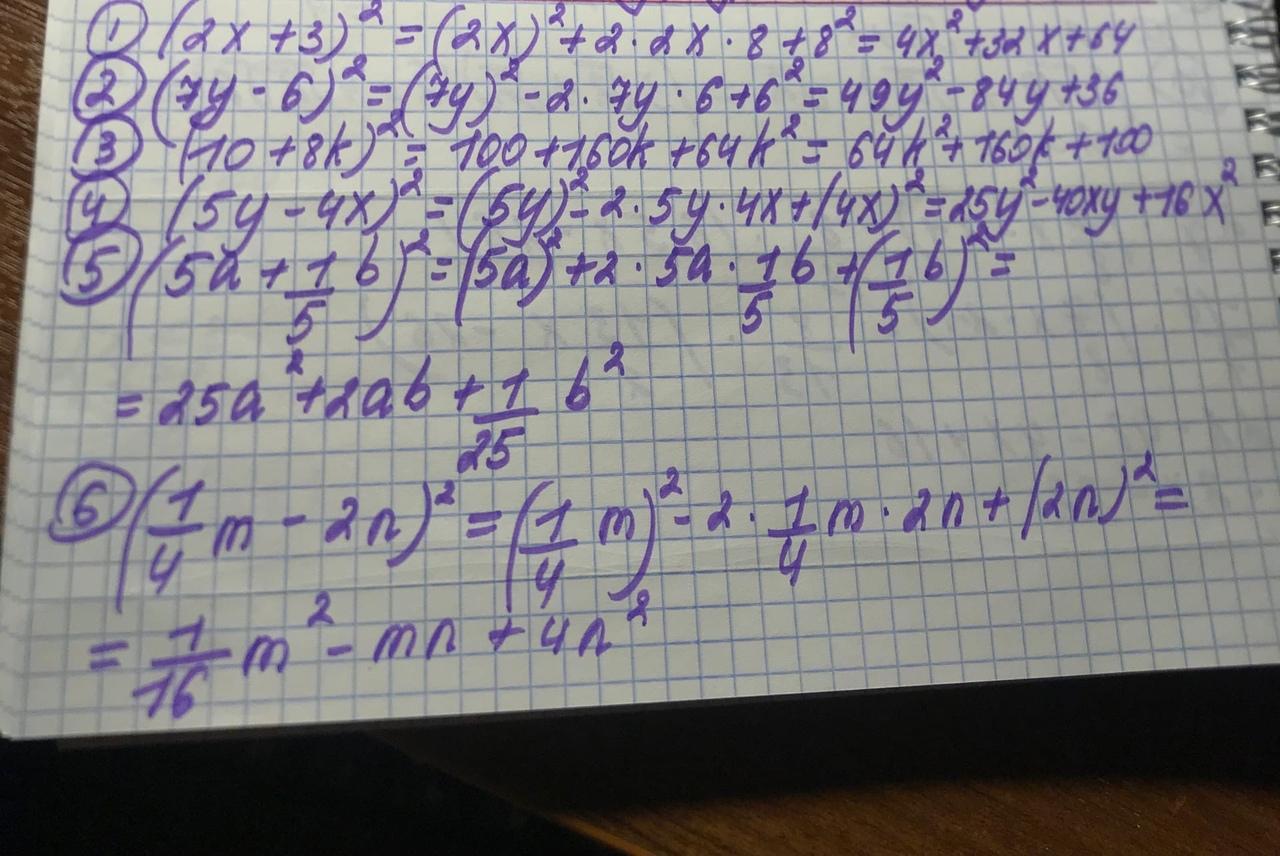 ① (2x + 3)² = (2x)² + 2 · 2x · 8 + 8² = 4x² + 32x + 64
② (7y - 6)² = (7y)² - 2 · 7y · 6 + 6² = 49y² - 84y + 36
③ (10 + 8k)² = 100 + 160k + 64k² = 64k² + 160k + 100
④ (5y - 4x)² = (5y)² - 2 · 5y · 4x + (4x)² = 25y² - 40xy + 16x²
⑤ (5a + 1/5 b)² = (5a)² + 2 · 5a · 1/5 b + (1/5 b)² =
= 25a² + 2ab + 1/25 b²
⑥ (1/4 m - 2n)² = (1/4 m)² - 2 · 1/4 m · 2n + (2n)² =
= 1/16 m² - mn + 4n²